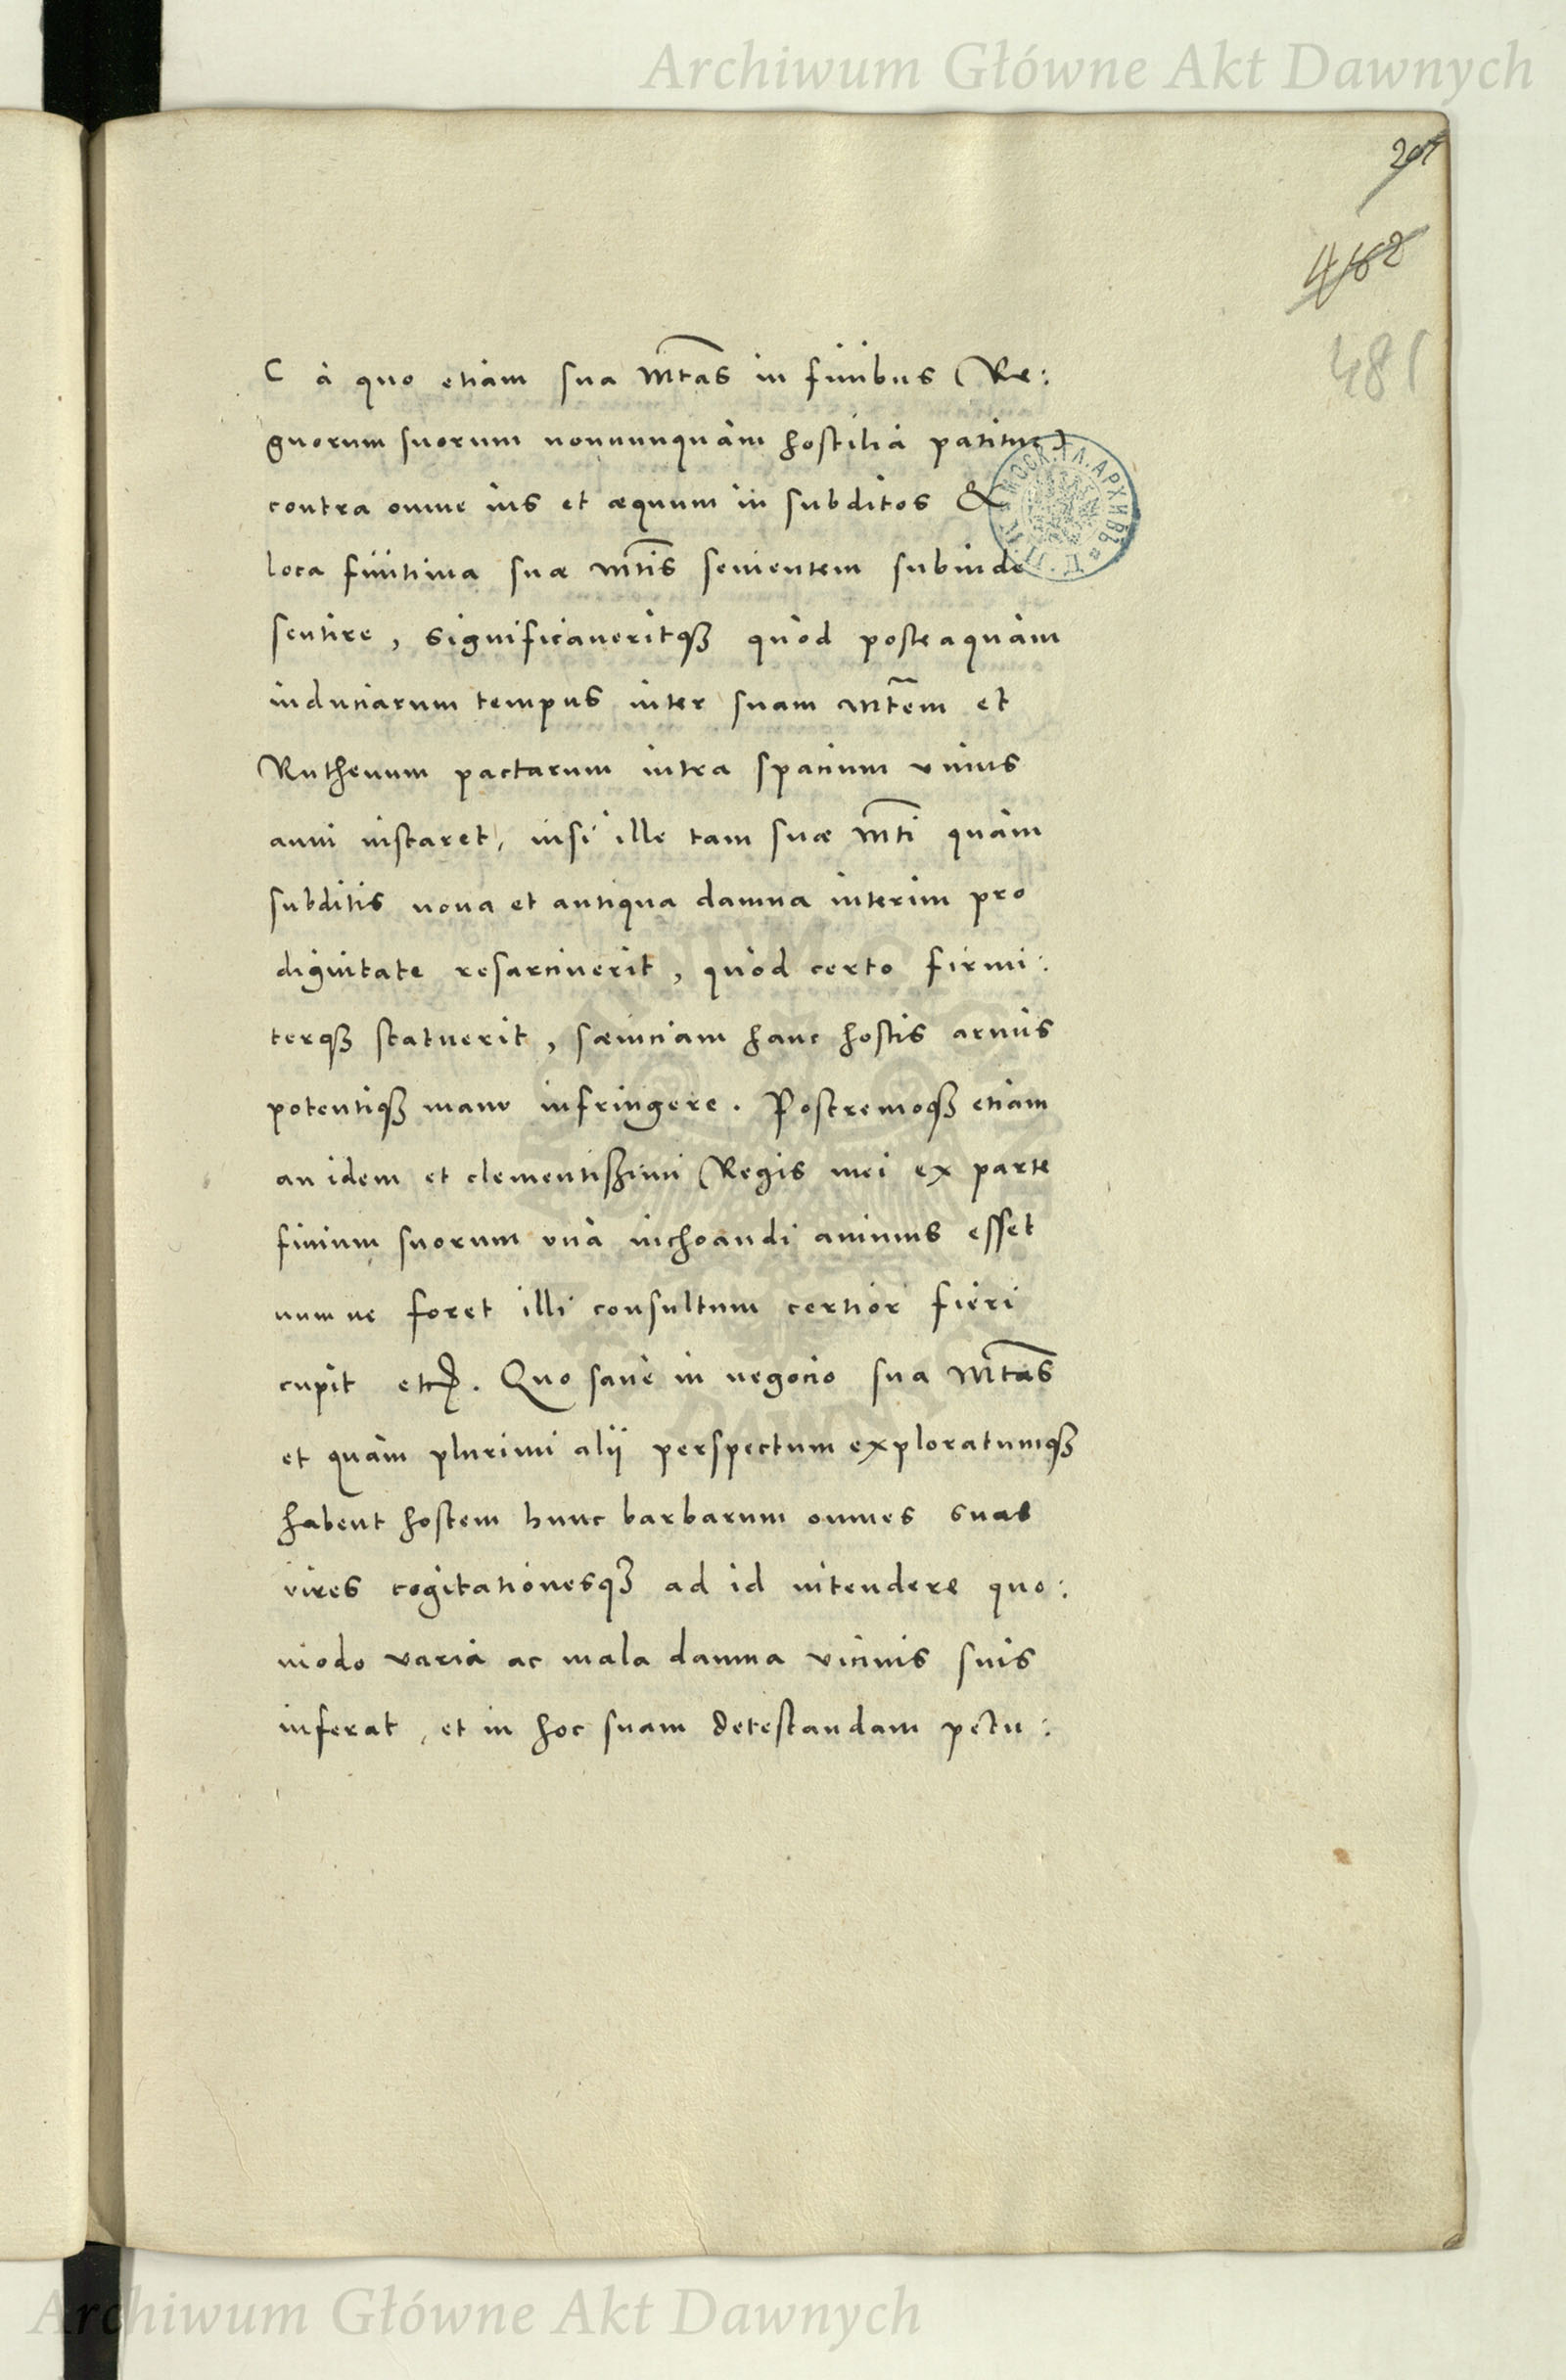 Archiwum Główne Akt Dawnych
201
468
481
( à quo etiam sua Mtas in finibus Re:
gnorum suorum nonnunquàm hostilia patitur)
contra omne ius et æquum in subditos &
loca finitima suæ Mtis seuientem subinde
sentire, significaueritqȝ quòd posteaquàm
induciarum tempus inter suam Mtem et
Ruthenum pactarum intra spacium vnius
anni instaret, nisi ille tam suæ Mti quàm
subditis noua et antiqua damna interim pro
dignitate resarciuerit, quòd certo firmi:
terqȝ statuerit, sæuiciam hanc hostis armis
potentiqȝ manu infringere. Postremoqȝ etiam
an idem et clementißimi Regis mei ex parte
finium suorum vnà inchoandi animus esset
num ne foret illi consultum certior fieri
cupit etc. Quo sanè in negocio sua Mtas
et quàm plurimi alij perspectum exploratumqȝ
habent hostem hunc barbarum omnes suas
vires cogitationesqȝ ad id intendere quo:
modo varia ac mala damna vicinis suis
inferat, et in hoc suam detestandam petu:
Archiwum Główne Akt Dawnych